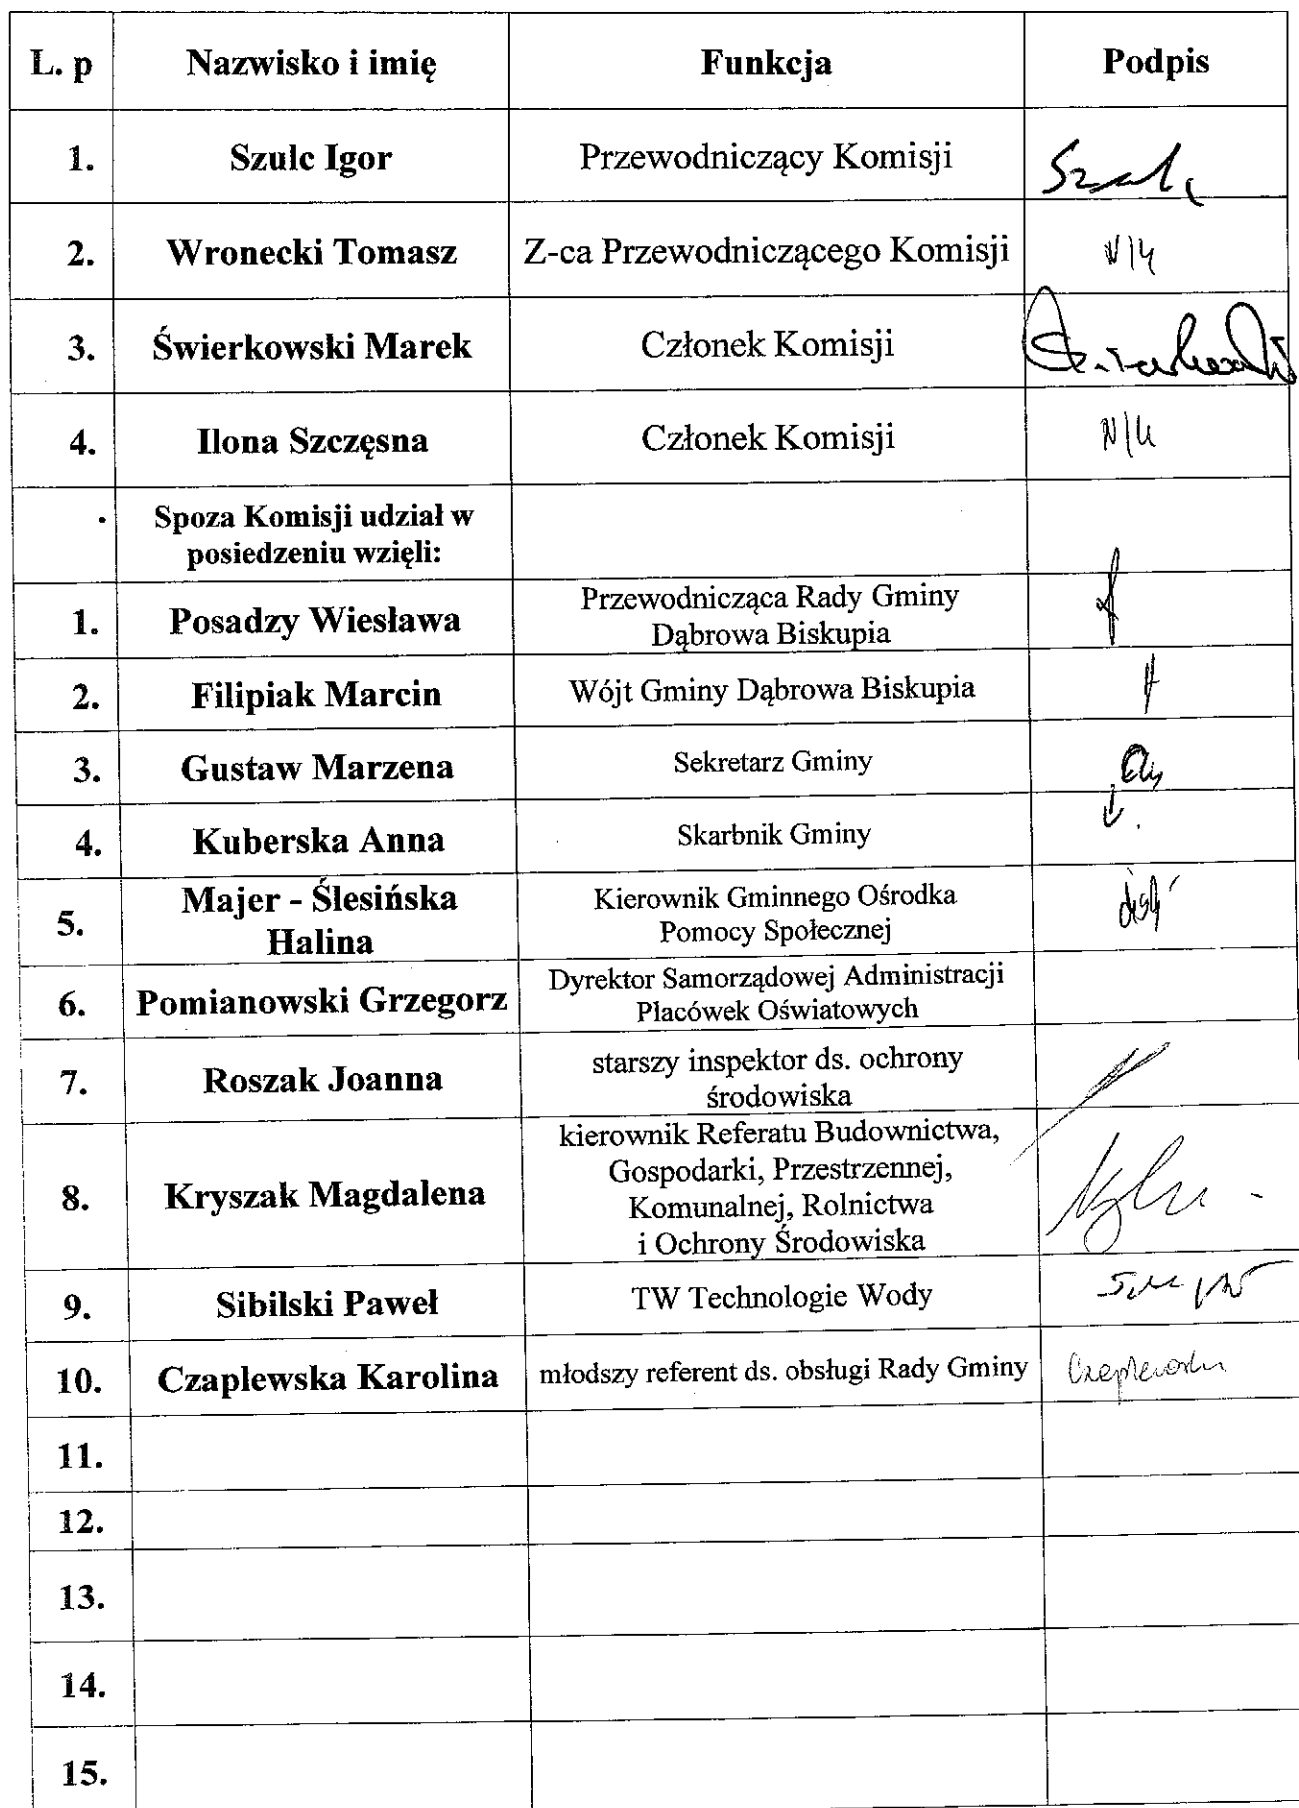 L. p Nazwisko i imię Funkcja Podpis
1. Szulc Igor Przewodniczący Komisji Szulc
2. Wronecki Tomasz Z-ca Przewodniczącego Komisji
3. Świerkowski Marek Członek Komisji
4. Ilona Szczęsna Członek Komisji
Spoza Komisji udział w
posiedzeniu wzięli:
1. Posadzy Wiesława Przewodnicząca Rady Gminy
Dąbrowa Biskupia
2. Filipiak Marcin Wójt Gminy Dąbrowa Biskupia
3. Gustaw Marzena Sekretarz Gminy
4. Kuberska Anna Skarbnik Gminy
5. Majer - Ślesińska
Halina
Kierownik Gminnego Ośrodka
Pomocy Społecznej
6. Pomianowski Grzegorz Dyrektor Samorządowej Administracji
Placówek Oświatowych
7. Roszak Joanna starszy inspektor ds. ochrony
środowiska
8. Kryszak Magdalena kierownik Referatu Budownictwa,
Gospodarki, Przestrzennej,
Komunalnej, Rolnictwa
i Ochrony Środowiska
9. Sibilski Paweł TW Technologie Wody
10. Czaplewska Karolina młodszy referent ds. obsługi Rady Gminy
11.
12.
13.
14.
15.